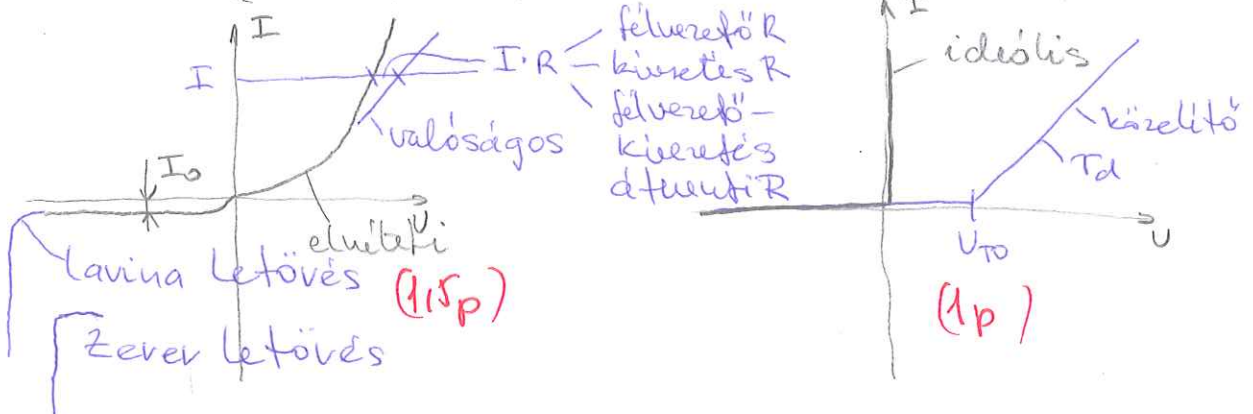 I
I
I·R
félvezető R
kivezetés R
félvezető-
kivezetés
átmeneti R
valóságos
I₀
U
elméleti
lavina letörés
(1,5p)
Zener letörés
I
ideális
közelítő
rd
U
UT0
(1p)